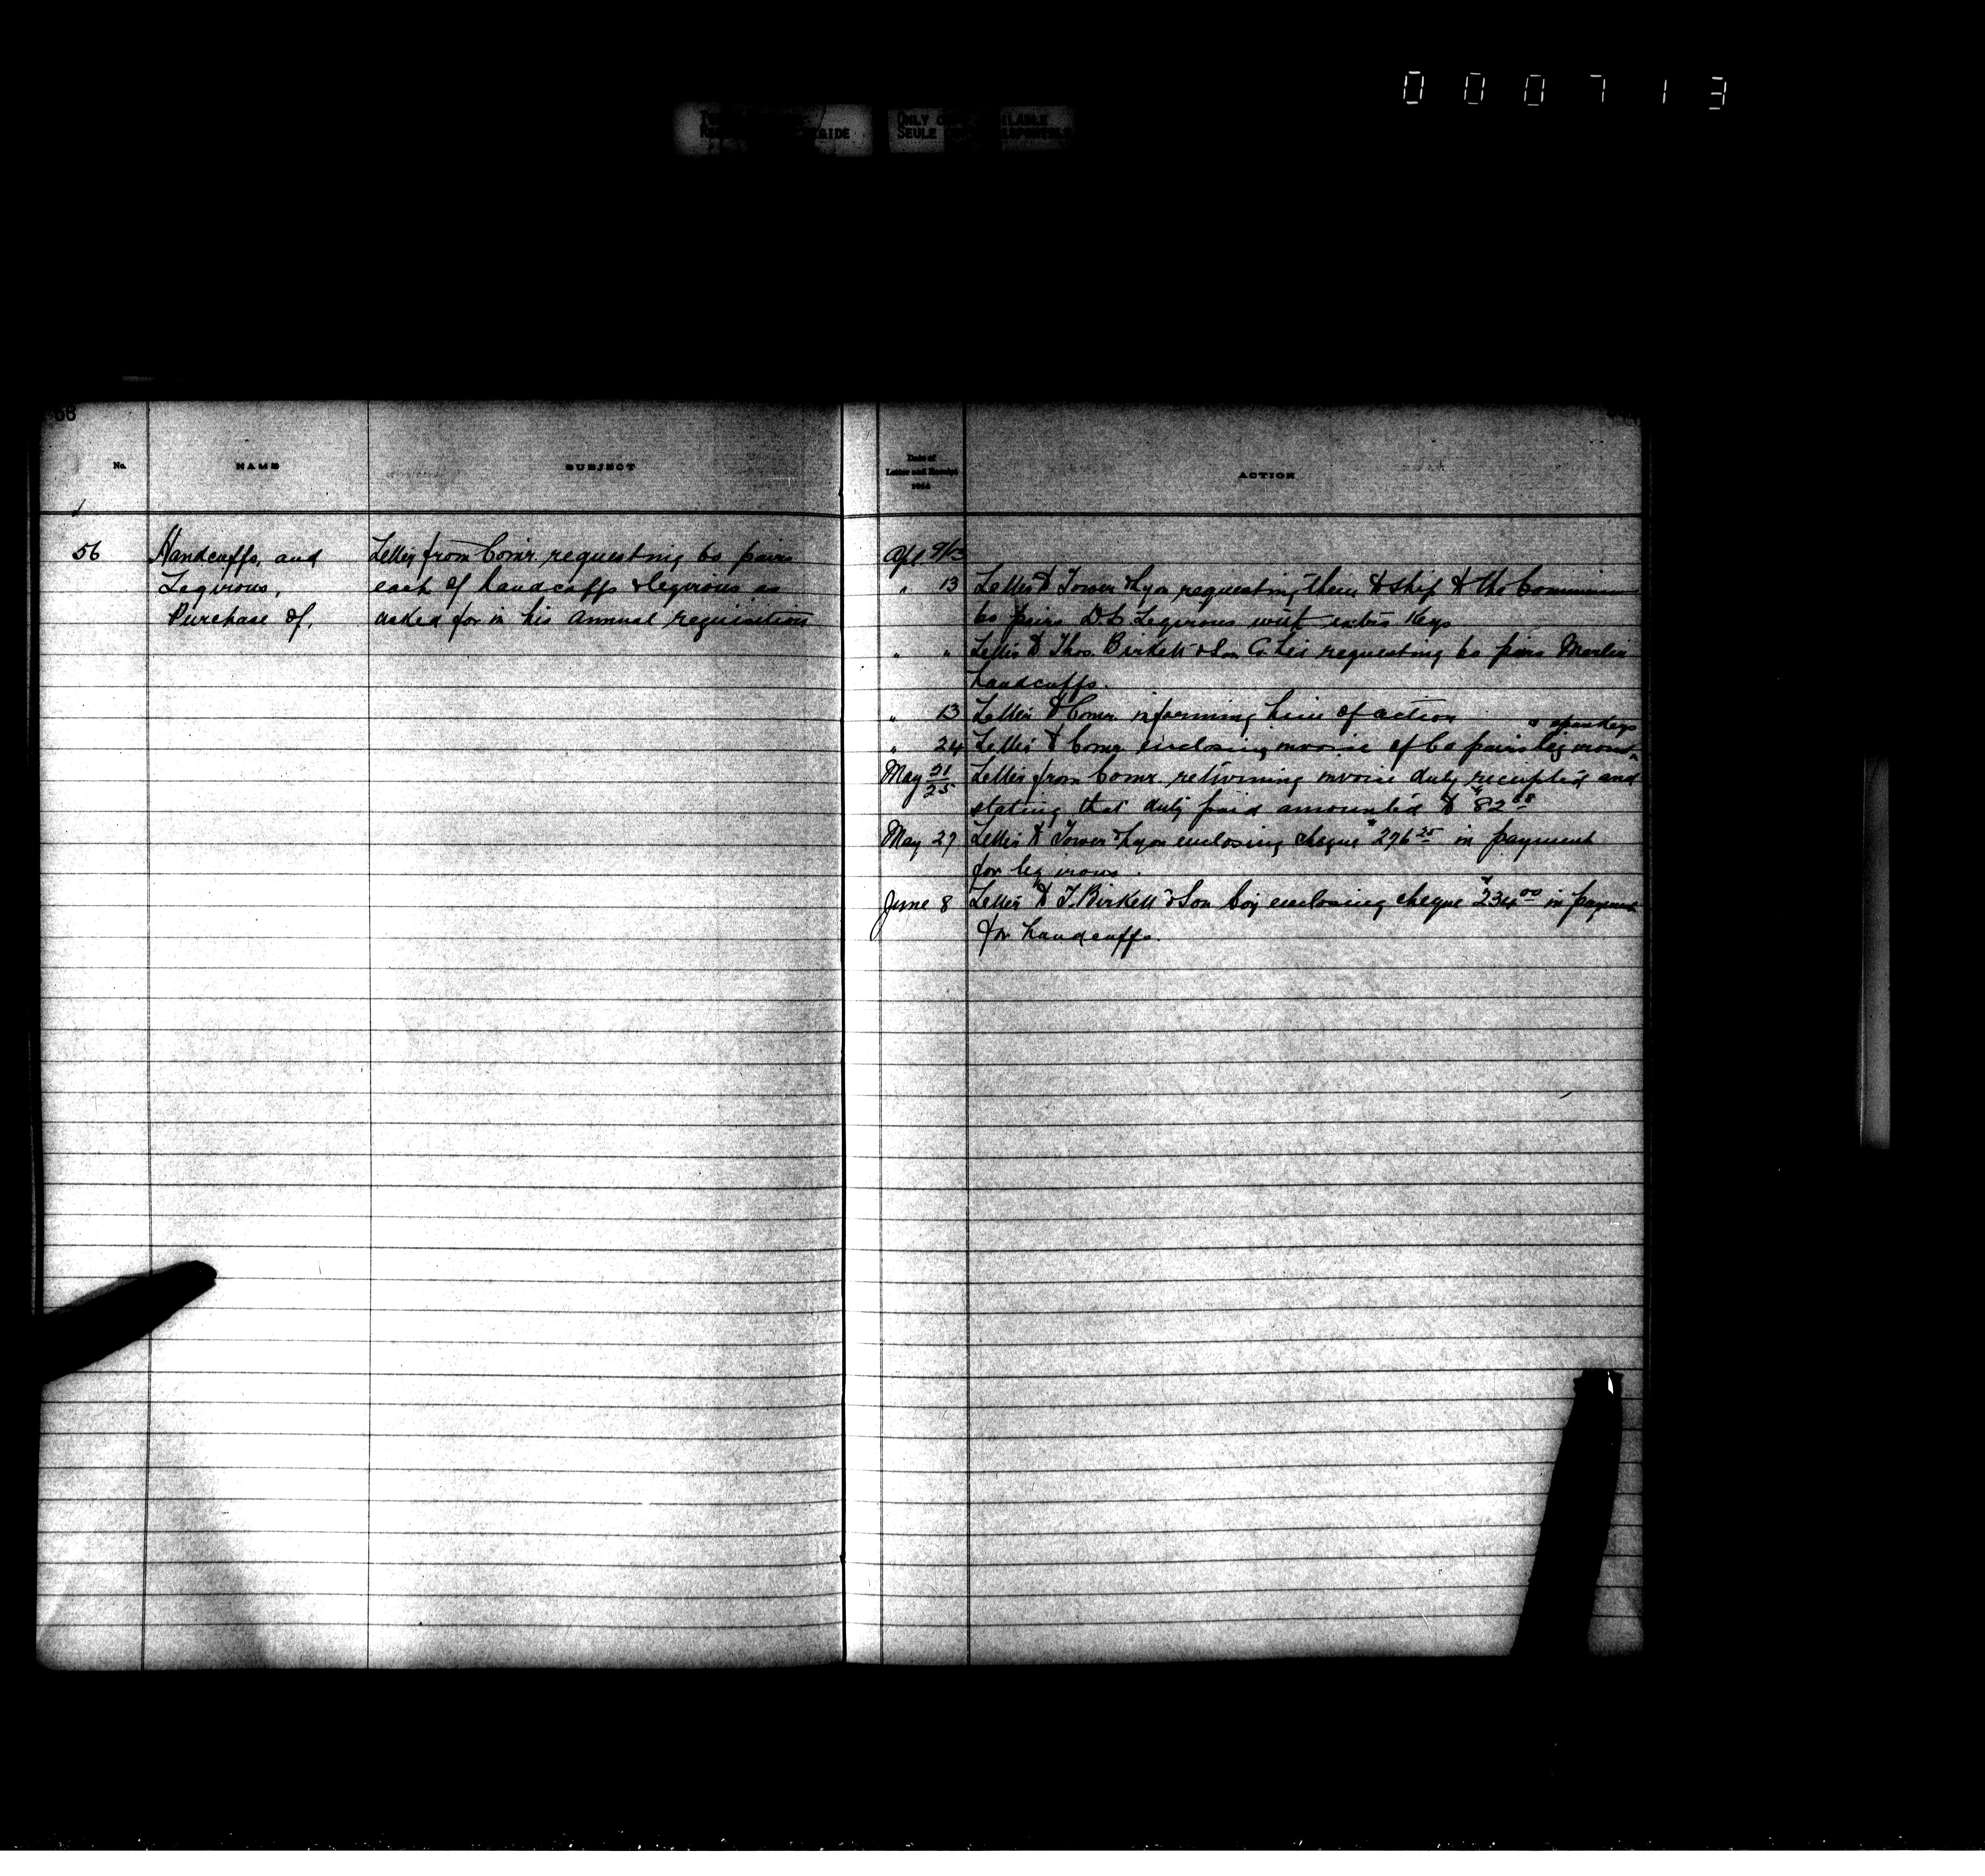 000713
ONLY
SEULE
68
No.
NAME
SUBJECT
Date of
Letter and Receipt
1914
ACTION
56
Handcuffs, and
Legirons,
Purchase of,
Letter from Comr. requesting 60 pairs
each of handcuffs & legirons as
asked for in his annual requisition
Apl 9/13
" 13 Letter to Tower & Lyon requesting them to ship to the
60 pairs Legirons with extra Keys
" " Letter to Thos. Birkett & Son Co. requesting 60 pairs Marlin
handcuffs.
" 13 Letter to Comr. informing him of action
& spare keys
" 24 Letter to Comr. enclosing invoice of 60 pairs leg irons
May 21/25 Letter from Comr. returning invoice duly receipted and
stating that duty paid amounted to $82 68
May 27 Letter to Tower & Lyon enclosing cheque $276 25 in payment
for leg irons.
June 8 Letter to T. Birkett & Son Coy enclosing cheque $234 00 in payment
for handcuffs.